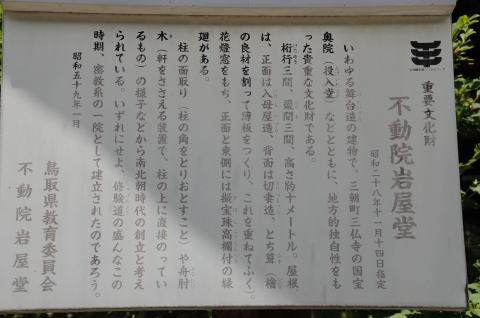 重要文化財
不動院岩屋堂
昭和二十八年十一月十四日指定
いわゆる舞台造の建物で、三朝町三仏寺の国宝
奥院(投入堂)などとともに、地方的独自性をも
った貴重な文化財である。
桁行三間、梁間三間、高さ約十メートル。屋根
は、正面は入母屋造、背面は切妻造、とち葺(檜
の良材を割って薄板をつくり、これを重ねてふく)。
花燈窓をもち、正面と東側には擬宝珠高欄付の縁
廻がある。
柱の面取り(柱の角をとりおとすこと)や舟肘
木(軒をささえる装置で、柱の上に直接のってい
るもの)の様子などから南北朝時代の創立と考え
られている。いずれにせよ、修験道の盛んなこの
時期、密教系の一院として建立されたのであろう。
昭和五十九年一月
鳥取県教育委員会
不動院岩屋堂